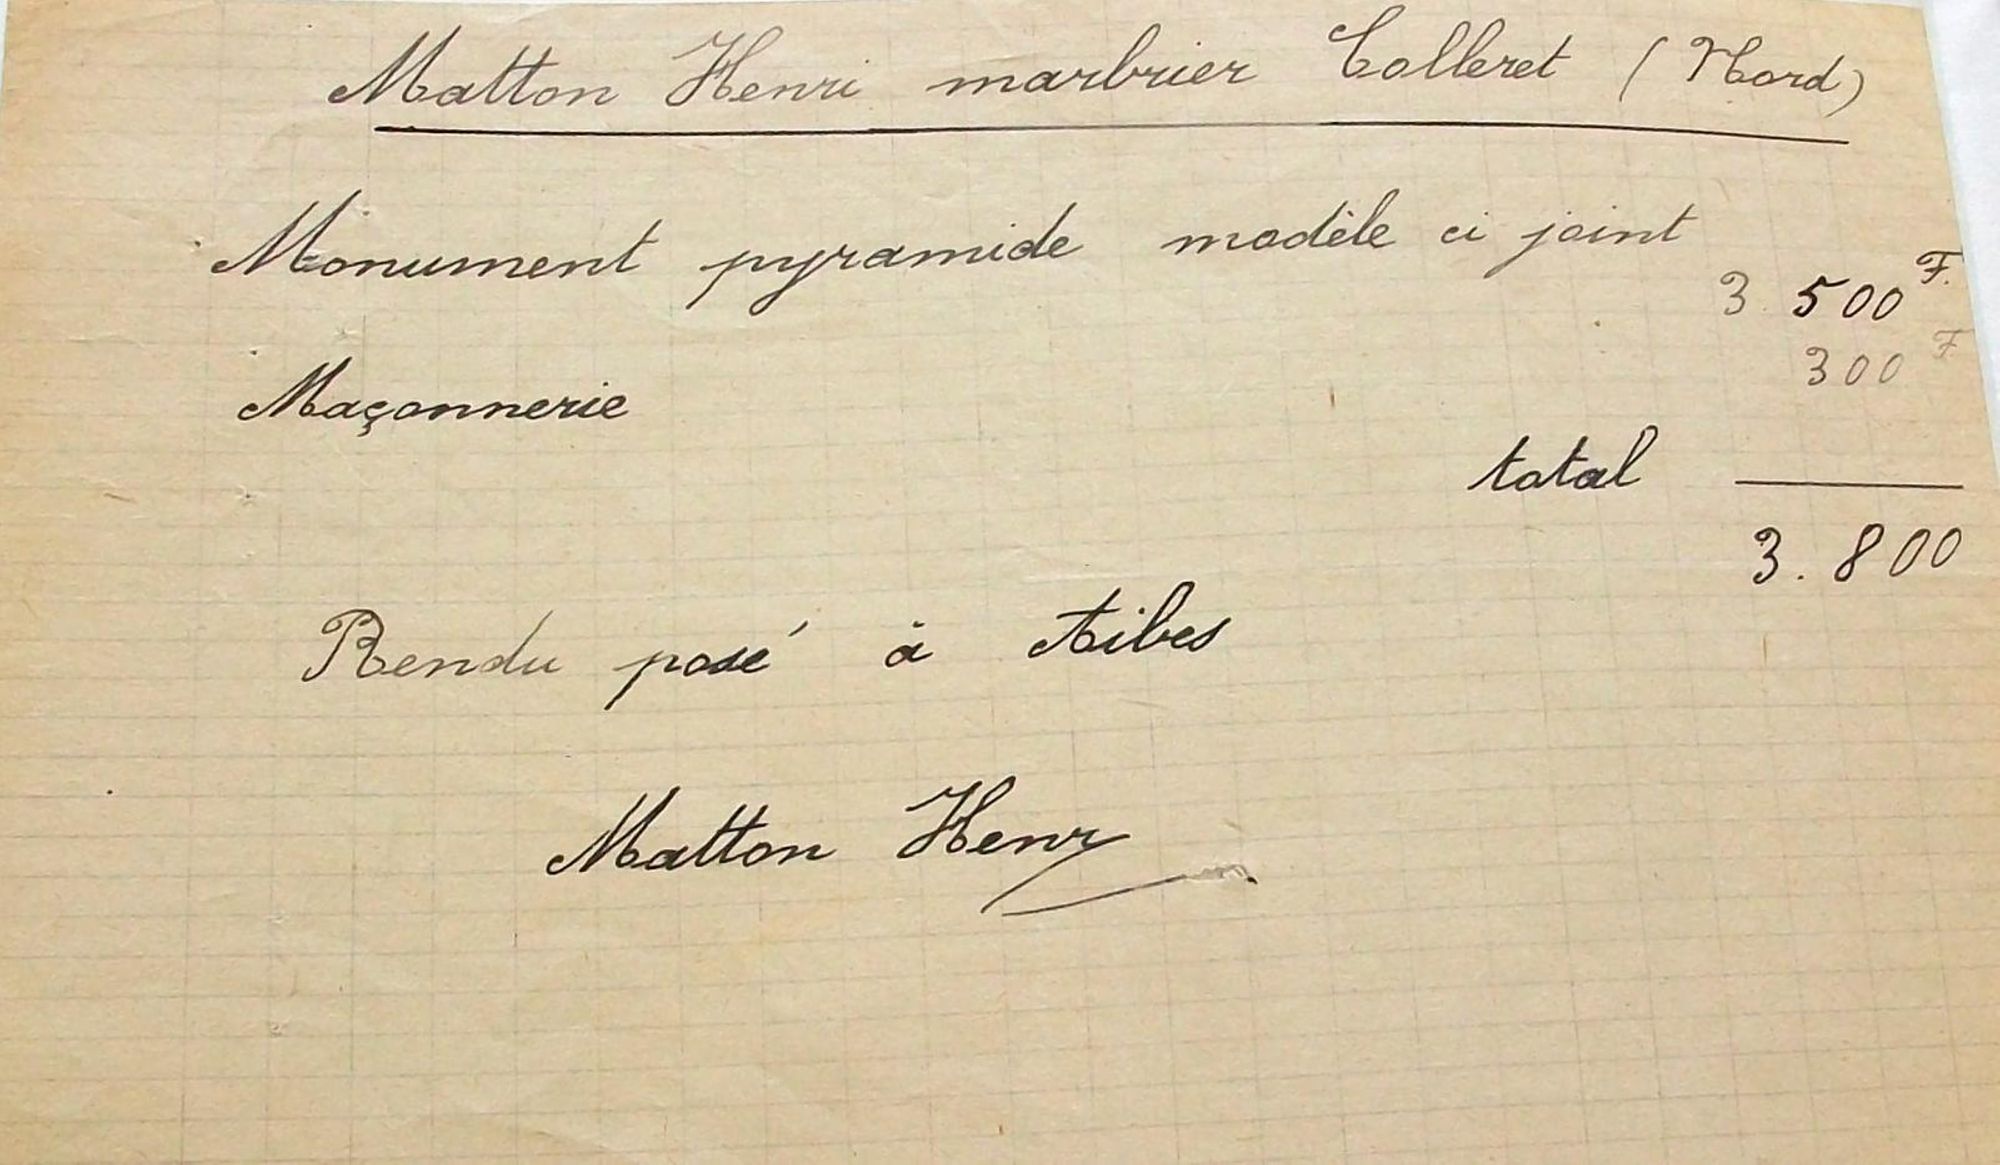 Matton Henri marbrier Colleret (Nord)
Monument pyramide modèle ci joint
3.500 F.
300 F.
Maçonnerie
total
3.800
Rendu posé à Aibes
Matton Henri